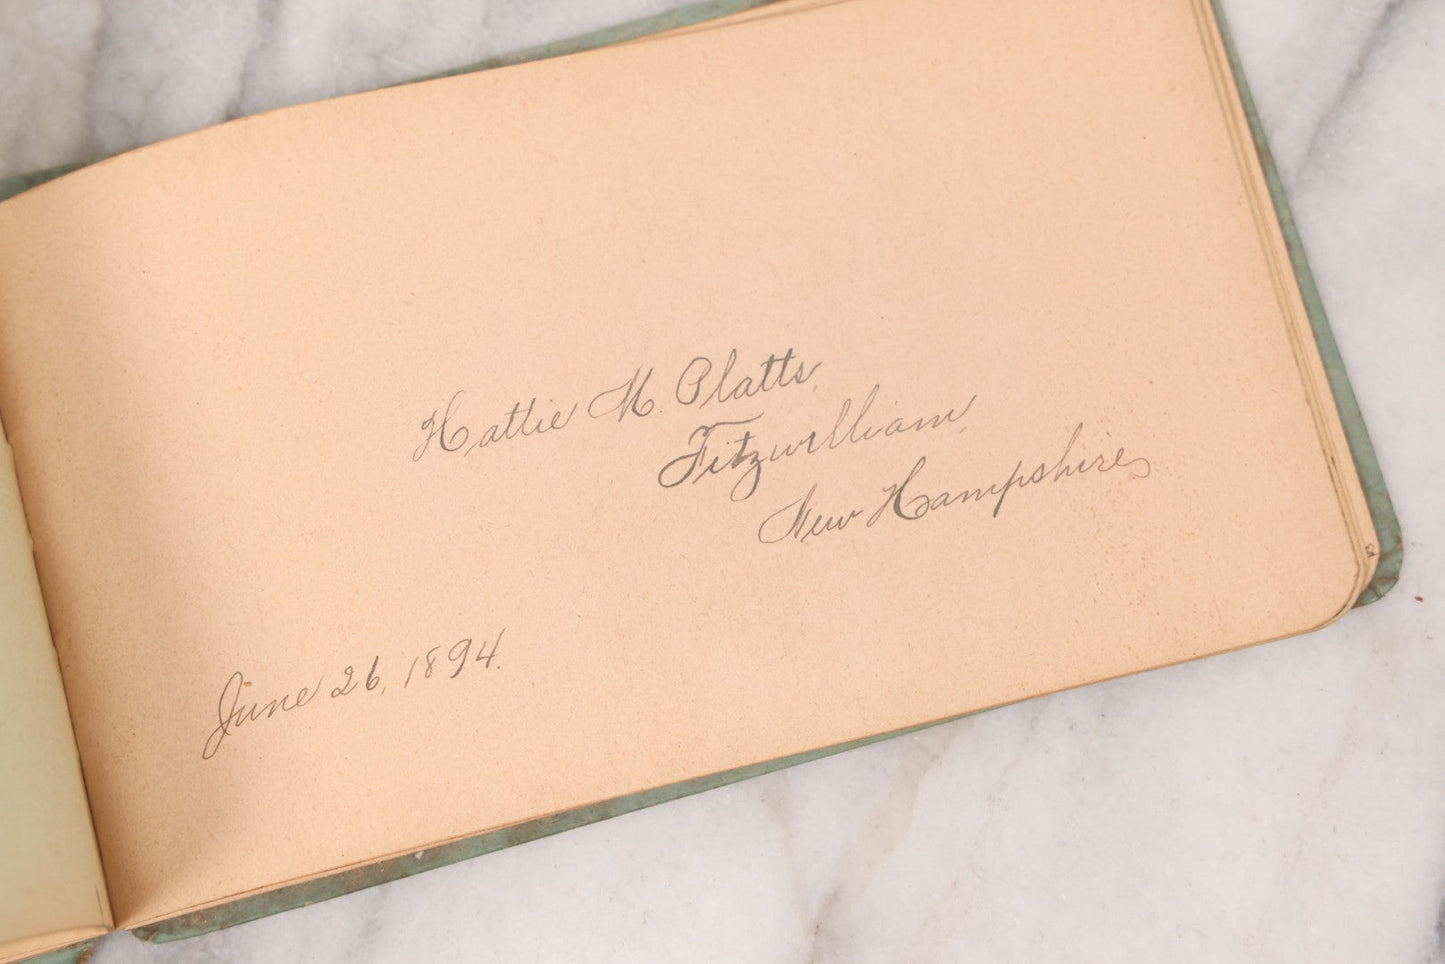 Hattie M. Platts,
Fitzwilliam,
New Hampshire,
June 26, 1894.